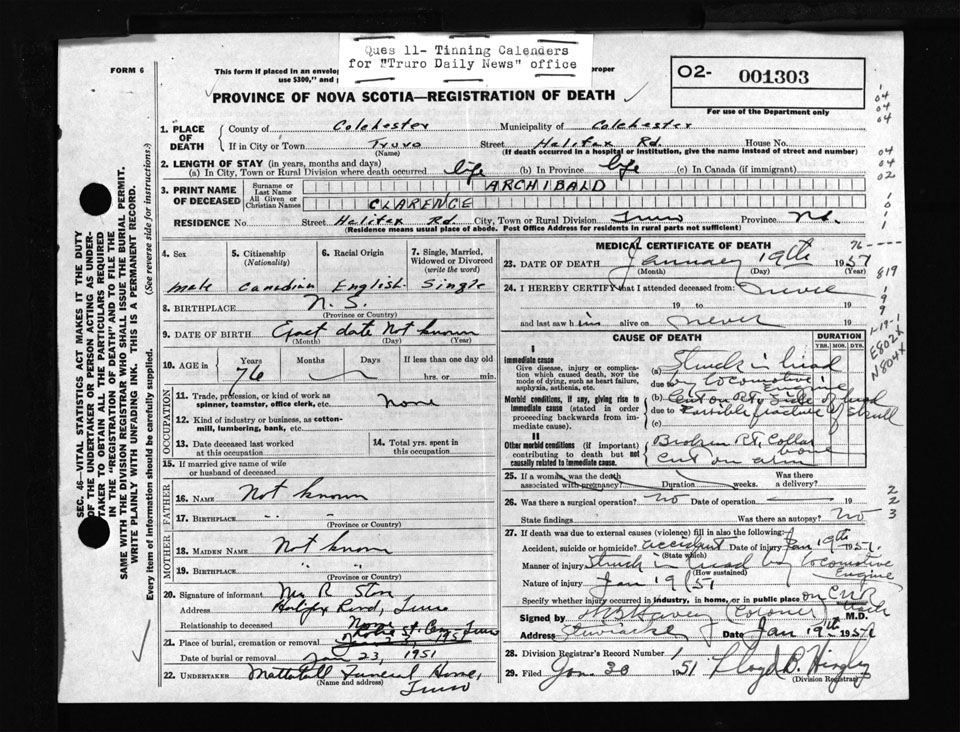 Ques 11- Tinning Calenders
for "Truro Daily News" office
FORM 6
This form if placed in an envelop proper
use $300," and p
O2- 001303
For use of the Department only
PROVINCE OF NOVA SCOTIA—REGISTRATION OF DEATH
1. PLACE OF DEATH
County of Colchester Municipality of Colchester
If in City or Town Truro Street Halifax Rd. House No.
(Name) (If death occurred in a hospital or institution, give the name instead of street and number)
2. LENGTH OF STAY (in years, months and days)
(a) In City, Town or Rural Division where death occurred life (b) In Province life (c) In Canada (if immigrant)
3. PRINT NAME OF DECEASED
Surname or Last Name ARCHIBALD
All Given or Christian Names CLARENCE
RESIDENCE No. Street Halifax Rd. City, Town or Rural Division Truro Province N.S.
(Residence means usual place of abode. Post Office Address for residents in rural parts not sufficient)
4. Sex male
5. Citizenship (Nationality) Canadian
6. Racial Origin English
7. Single, Married, Widowed or Divorced (write the word) Single
8. BIRTHPLACE N.S.
(Province or Country)
9. DATE OF BIRTH Exact date Not known
(Month) (Day) (Year)
10. AGE in Years 76 Months Days If less than one day old
hrs. or min.
OCCUPATION
11. Trade, profession, or kind of work as spinner, teamster, office clerk, etc. None
12. Kind of industry or business, as cotton-mill, lumbering, bank, etc.
13. Date deceased last worked at this occupation
14. Total yrs. spent in this occupation
15. If married give name of wife or husband of deceased
FATHER
16. NAME Not known
17. BIRTHPLACE " "
(Province or Country)
MOTHER
18. MAIDEN NAME Not known
19. BIRTHPLACE " "
(Province or Country)
20. Signature of informant Mr R
Address Halifax Road, Truro
Relationship to deceased None
21. Place of burial, cremation or removal Truro
Date of burial or removal Jan 23, 1951
22. UNDERTAKER Mattatall Funeral Home,
(Name and address) Truro
MEDICAL CERTIFICATE OF DEATH
23. DATE OF DEATH January 19th 1951
(Month) (Day) (Year)
24. I HEREBY CERTIFY that I attended deceased from never
19 to 19
and last saw him alive on never 19
CAUSE OF DEATH
DURATION
YRS. MOS. DYS.
I
Immediate cause
Give disease, injury or complication which caused death, NOR the mode of dying, such as heart failure, asphyxia, asthenia, etc.
(a) Struck in head
due to by locomotive Engine
Morbid conditions, if any, giving rise to immediate cause (stated in order proceeding backwards from immediate cause).
(b) Cut on Rt Side of head
due to Possible fracture of Skull
II
Other morbid conditions (if important) contributing to death but not causally related to immediate cause.
Broken Rt. Collar bone
Cut on arm
25. If a woman, was the death associated with pregnancy? Duration weeks. Was there a delivery?
26. Was there a surgical operation? No Date of operation 19
State findings Was there an autopsy? No
27. If death was due to external causes (violence) fill in also the following:
Accident, suicide or homicide? accident Date of injury Jan 19th 1951.
(State which)
Manner of injury Struck in head by locomotive Engine
(How sustained)
Nature of injury Jan 19/51
Specify whether injury occurred in industry, in home, or in public place on CNR track
Signed by (Coroner) M.D.
Address Stewiacke Date Jan 19th 1951
28. Division Registrar's Record Number 1
29. Filed Jan. 30 1951 Lloyd D. Hingley
(Division Registrar)
SEC. 46—VITAL STATISTICS ACT MAKES IT THE DUTY
OF THE UNDERTAKER OR PERSON ACTING AS UNDER-
TAKER TO OBTAIN ALL THE PARTICULARS REQUIRED
IN THE "REGISTRATION OF DEATH" AND TO FILE THE
SAME WITH THE DIVISION REGISTRAR WHO SHALL ISSUE THE BURIAL PERMIT.
WRITE PLAINLY WITH UNFADING INK. THIS IS A PERMANENT RECORD.
Every item of information should be carefully supplied. (See reverse side for instructions.)
1
04
04
04
04
04
02
1
0
1
1
76 - - - -
819
1
9
9
1-19-1
E802X
N804X
2
2
3